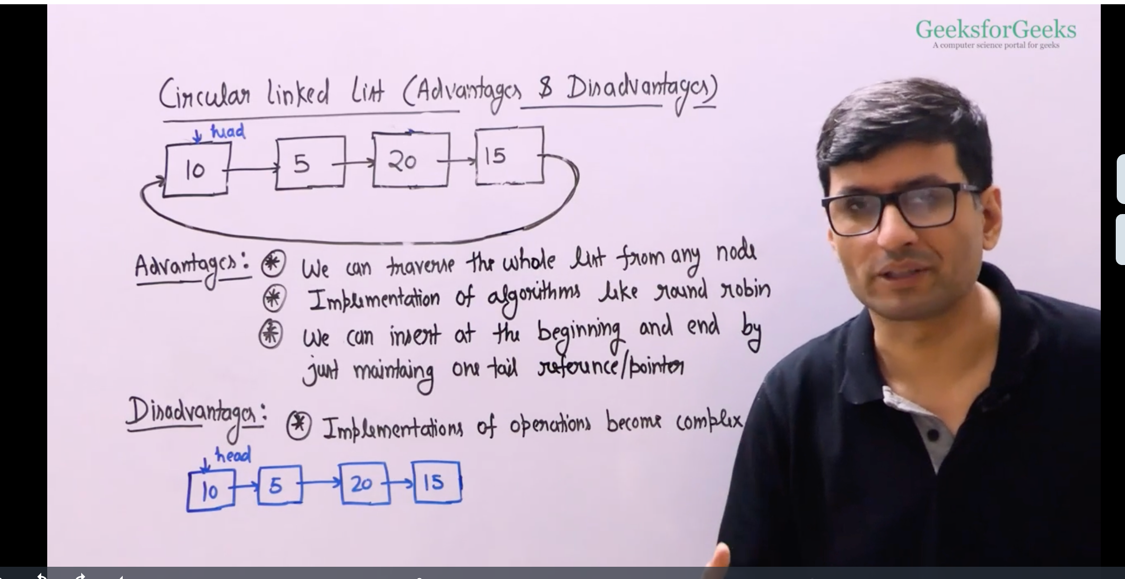 GeeksforGeeks
A computer science portal for geeks
Circular Linked List (Advantages & Disadvantages)
head
10 5 20 15
Advantages: * We can traverse the whole list from any node
* Implementation of algorithms like round robin
* We can insert at the beginning and end by
just maintaing one tail reference/pointer
Disadvantages: * Implementations of operations become complex
head
10 5 20 15